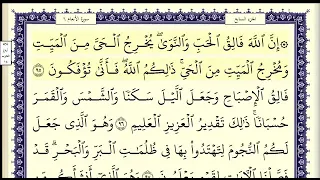 الجزء السابع
سورة الأنعام ٦
۞ إِنَّ ٱللَّهَ فَالِقُ ٱلْحَبِّ وَٱلنَّوَىٰ ۖ يُخْرِجُ ٱلْحَىَّ مِنَ ٱلْمَيِّتِ
وَمُخْرِجُ ٱلْمَيِّتِ مِنَ ٱلْحَىِّ ۚ ذَٰلِكُمُ ٱللَّهُ ۖ فَأَنَّىٰ تُؤْفَكُونَ ٩٥
فَالِقُ ٱلْإِصْبَاحِ وَجَعَلَ ٱلَّيْلَ سَكَنًا وَٱلشَّمْسَ وَٱلْقَمَرَ
حُسْبَانًا ۚ ذَٰلِكَ تَقْدِيرُ ٱلْعَزِيزِ ٱلْعَلِيمِ ٩٦ وَهُوَ ٱلَّذِى جَعَلَ
لَكُمُ ٱلنُّجُومَ لِتَهْتَدُوا۟ بِهَا فِى ظُلُمَٰتِ ٱلْبَرِّ وَٱلْبَحْرِ ۗ قَدْ